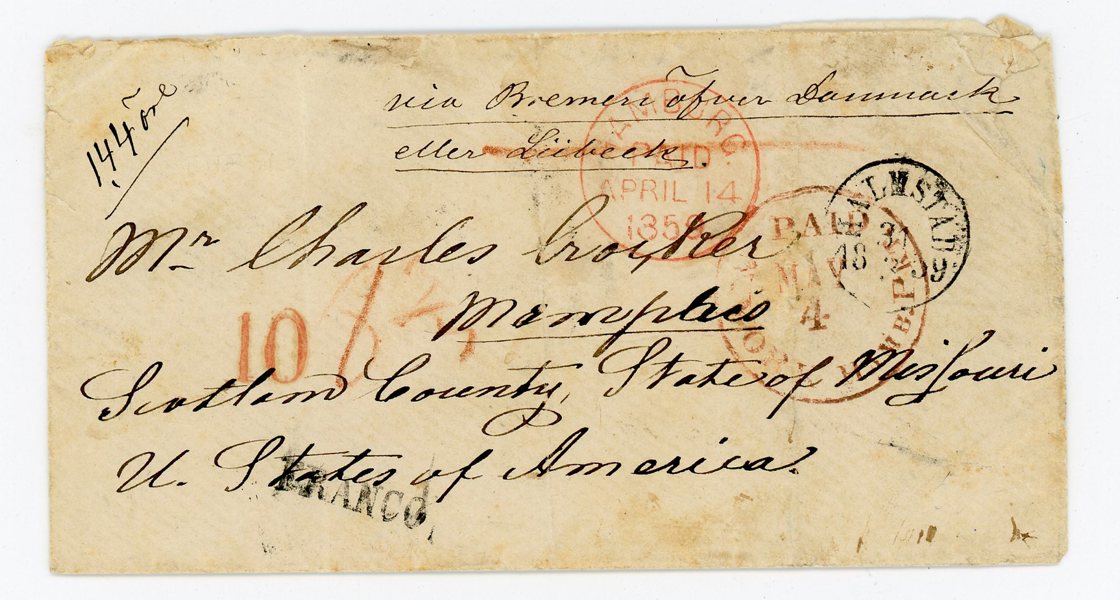 144 öre
via Bremen öfver Danmark
eller Lübeck.
HAMBURG
PAID
APRIL 14
1859
HALMSTAD
31
18 59
PAID
MAY
4
Mr Charles Croyker
Memphis
10
Scotland County, State of Missouri
U. States of America.
FRANCO